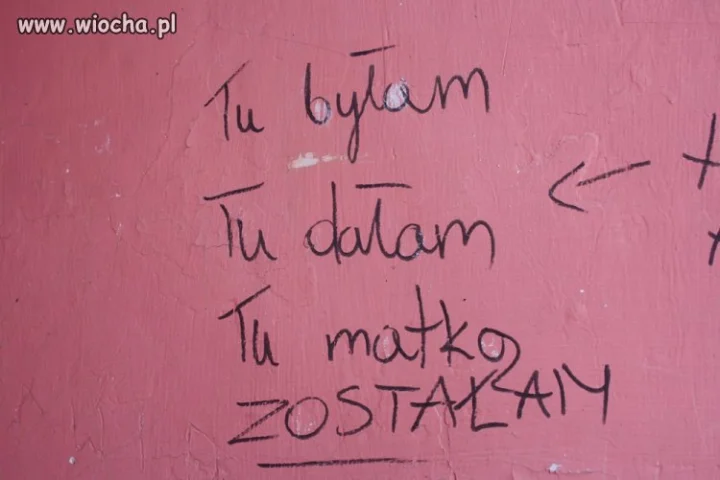 www.wiocha.pl
Tu byłam
Tu dałam
Tu matką
ZOSTAŁAM